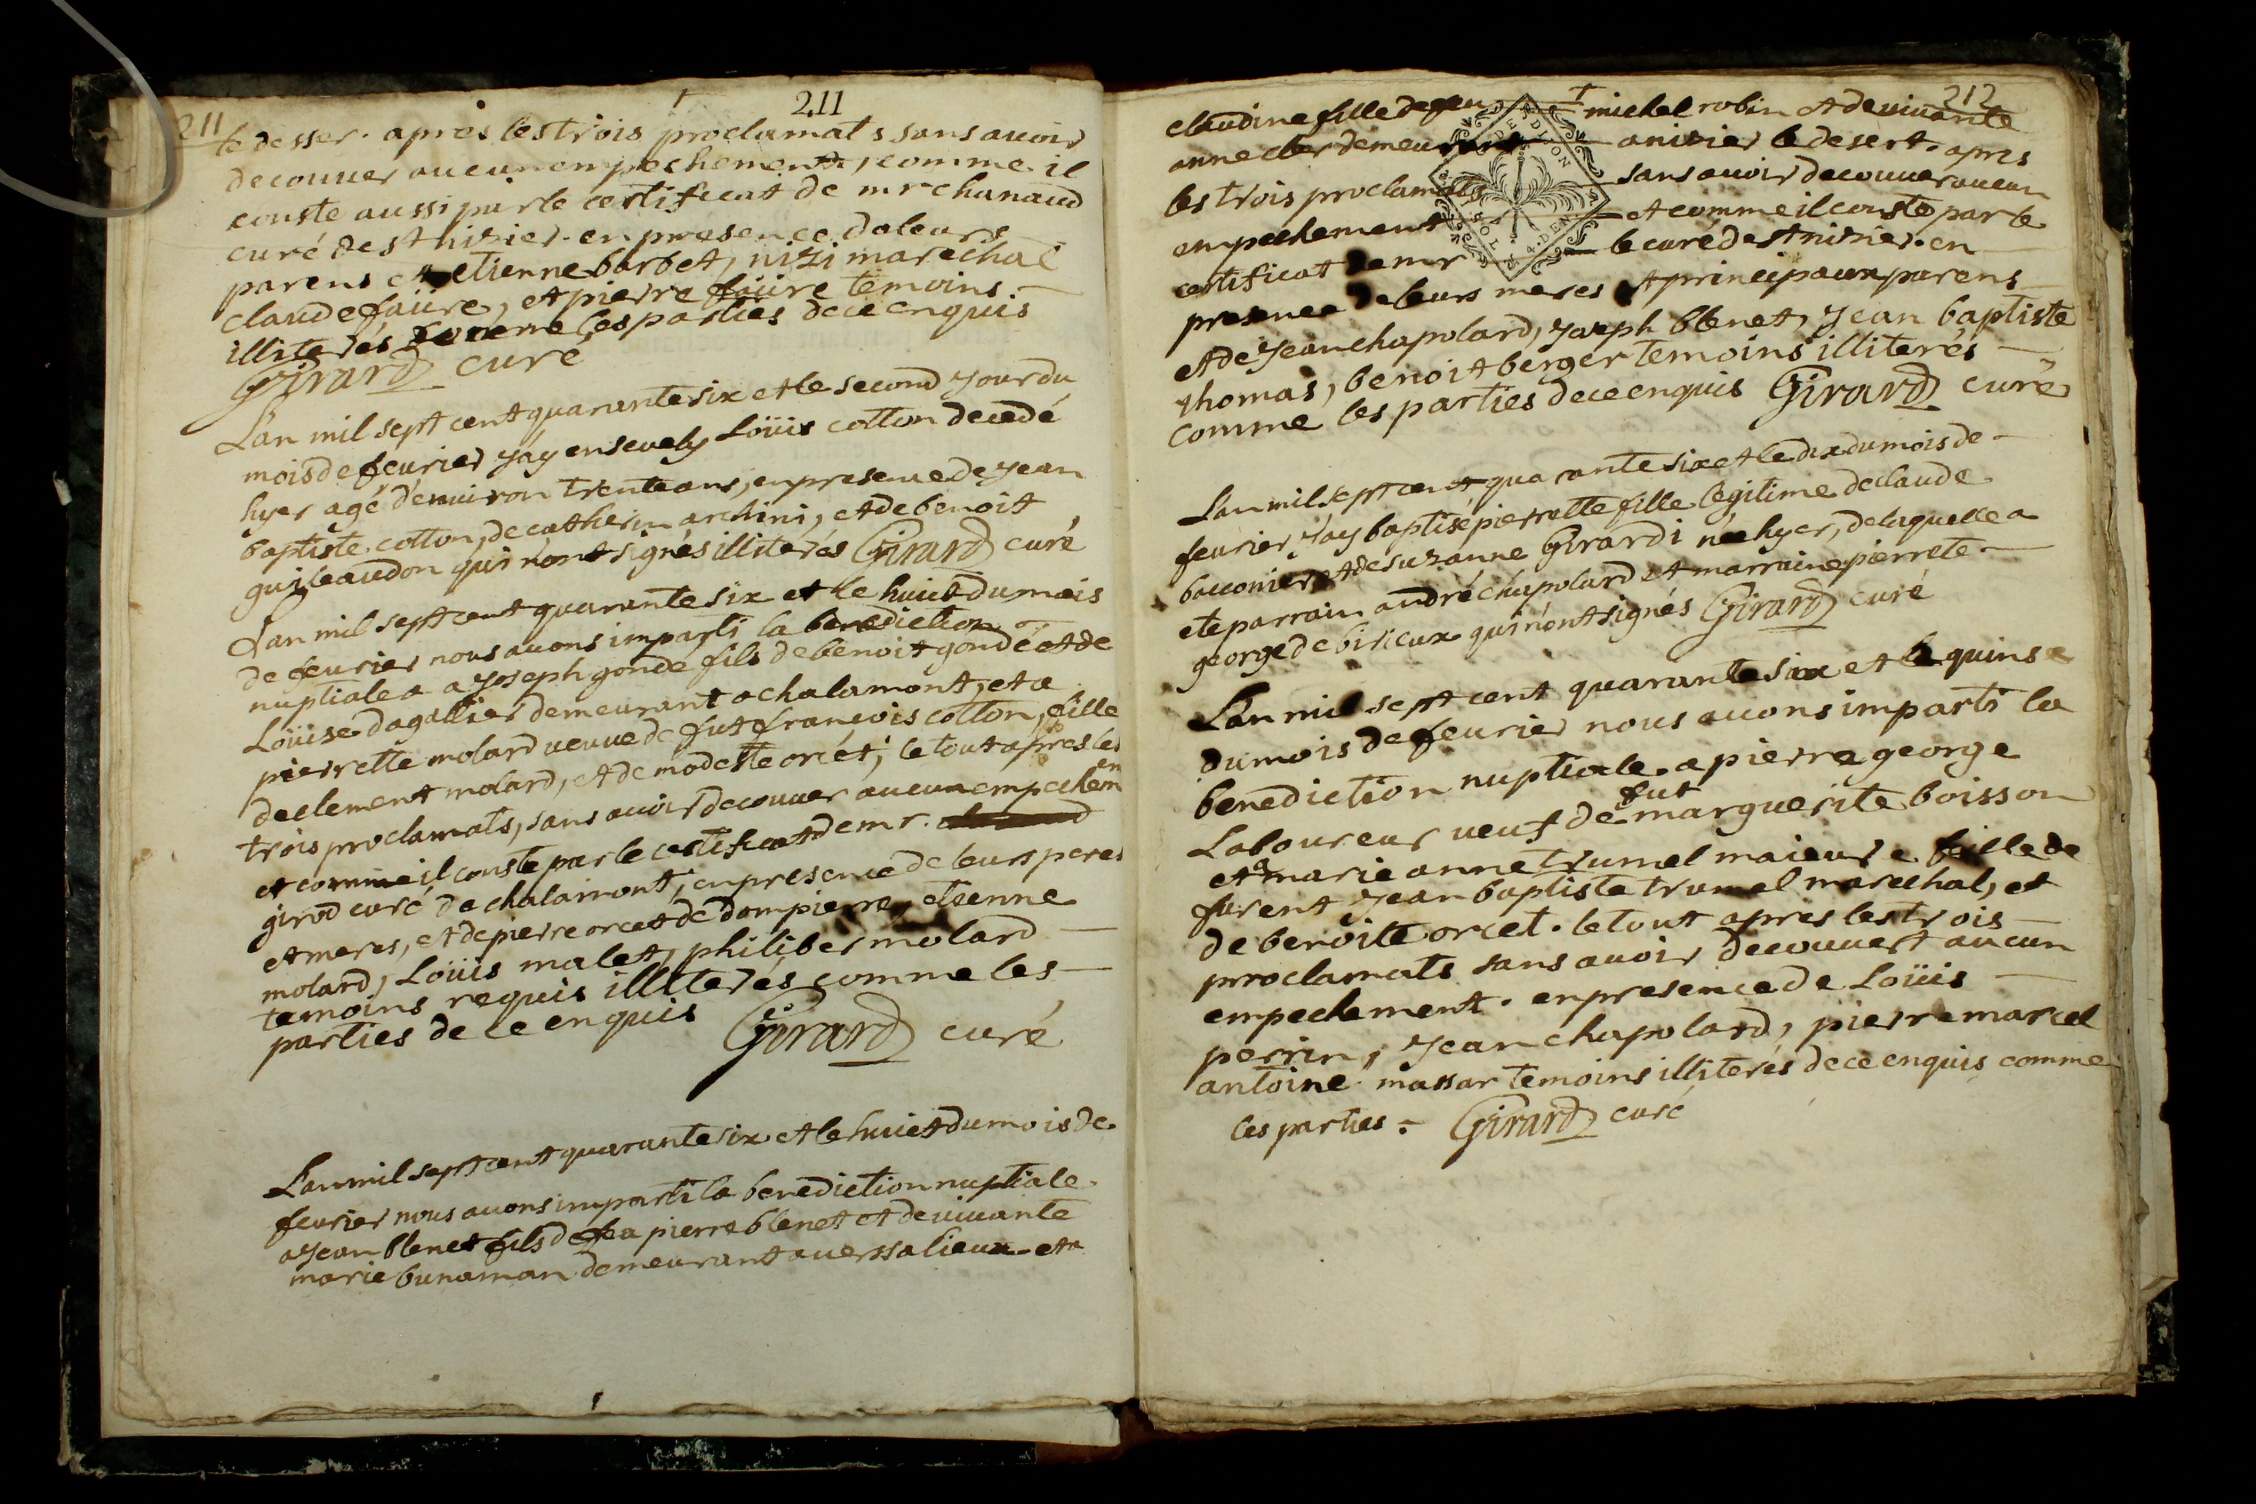 211
211
le desser. apres les trois proclamats sans avoir
decouver aucun empechement, comme il
conste aussi par le certificat de mr chanaud
curé de st nizier. en presence de leurs
parens et etienne barbet, nizi marechal
claude faüre, et pierre faüre temoins
illiterés comme les parties de ce enquis
Girard curé
L'an mil sept cent quarante six et le second jour du
mois de fevrier j'ay ensevely Loüis cotton decedé
hyer agé d'environ trente ans, en presence de jean
baptiste cotton, de catherin archini, et de benoit
guileaudon qui n'ont signés illiterés Girard curé
L'an mil sept cent quarante six et le huict du mois
de fevrier nous avons imparti la benediction
nuptiale a a joseph gonde fils de benoit gondé et de
Loüise dagallier demeurant a chalamont, et a
pierrette molard veuve de fut françois cotton, fille
de clement molard, et de modeste orcet, le tout apres les
trois proclamats, sans avoir decouver aucun empechem en
et comme il conste par le certificat de mr.
girod curé de chalamont, en presence de leurs peres
et meres, et de pierre orcet de dompierre, etienne
molard, Loüis malet, philiber molard
temoins requis illiterés comme les
parties de ce enquis Girard curé
L'an mil sept cent quarante six et le huict du mois de
fevrier nous avons imparti la benediction nuptiale
a jean blenet fils de fea pierre blenet et de vivante
marie bunaman demeurant a verssalieux et a
212
claudine fille de feu michel robin et de vivante
anne cler demeurant a nizier le desert. apres
les trois proclamats sans avoir decouver aucun
empechement et comme il conste par le
certificat de mr le curé de st nizier. en
presence de leurs meres et principaux parens
et de jean chapolard, joseph blenet, jean baptiste
thomas, benoit berger temoins illiterés
comme les parties de ce enquis Girard curé
L'an mil sept cent quarante six et le dix du mois de
fevrier, j'ay baptisé pierrette fille legitime de claude
bacconier et de suzanne Girardi née hyer, de laquelle a
ete parrain andré chapolard et marraine pierrete
george de birieux qui n'ont signés Girard curé
L'an mil sept cent quarante six et le quinse
du mois de fevrier nous avons imparti la
benediction nuptiale a pierre george
Laboureur veuf de fut marguerite boisson
et a marie anne trumel majeure fille de
furent jean baptiste trumel marechal, et
de benoite orcet. le tout apres les trois
proclamats sans avoir decouvert aucun
empechement. en presence de Loüis
perrin, jean chapolard, pierre marcel
antoine massar temoins illiterés de ce enquis comme
les parties. Girard curé